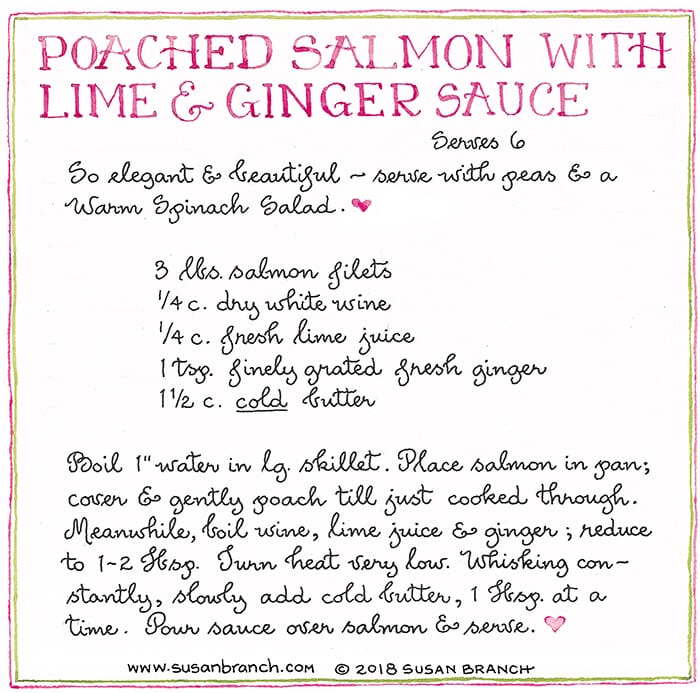 POACHED SALMON WITH
LIME & GINGER SAUCE
Serves 6
So elegant & beautiful ~ serve with peas & a
Warm Spinach Salad. ♥
3 lbs. salmon filets
1/4 c. dry white wine
1/4 c. fresh lime juice
1 tsp. finely grated fresh ginger
1 1/2 c. cold butter
Boil 1" water in lg. skillet. Place salmon in pan;
cover & gently poach till just cooked through.
Meanwhile, boil wine, lime juice & ginger; reduce
to 1~2 Tbsp. Turn heat very low. Whisking con~
stantly, slowly add cold butter, 1 Tbsp. at a
time. Pour sauce over salmon & serve. ♥
www.susanbranch.com © 2018 SUSAN BRANCH